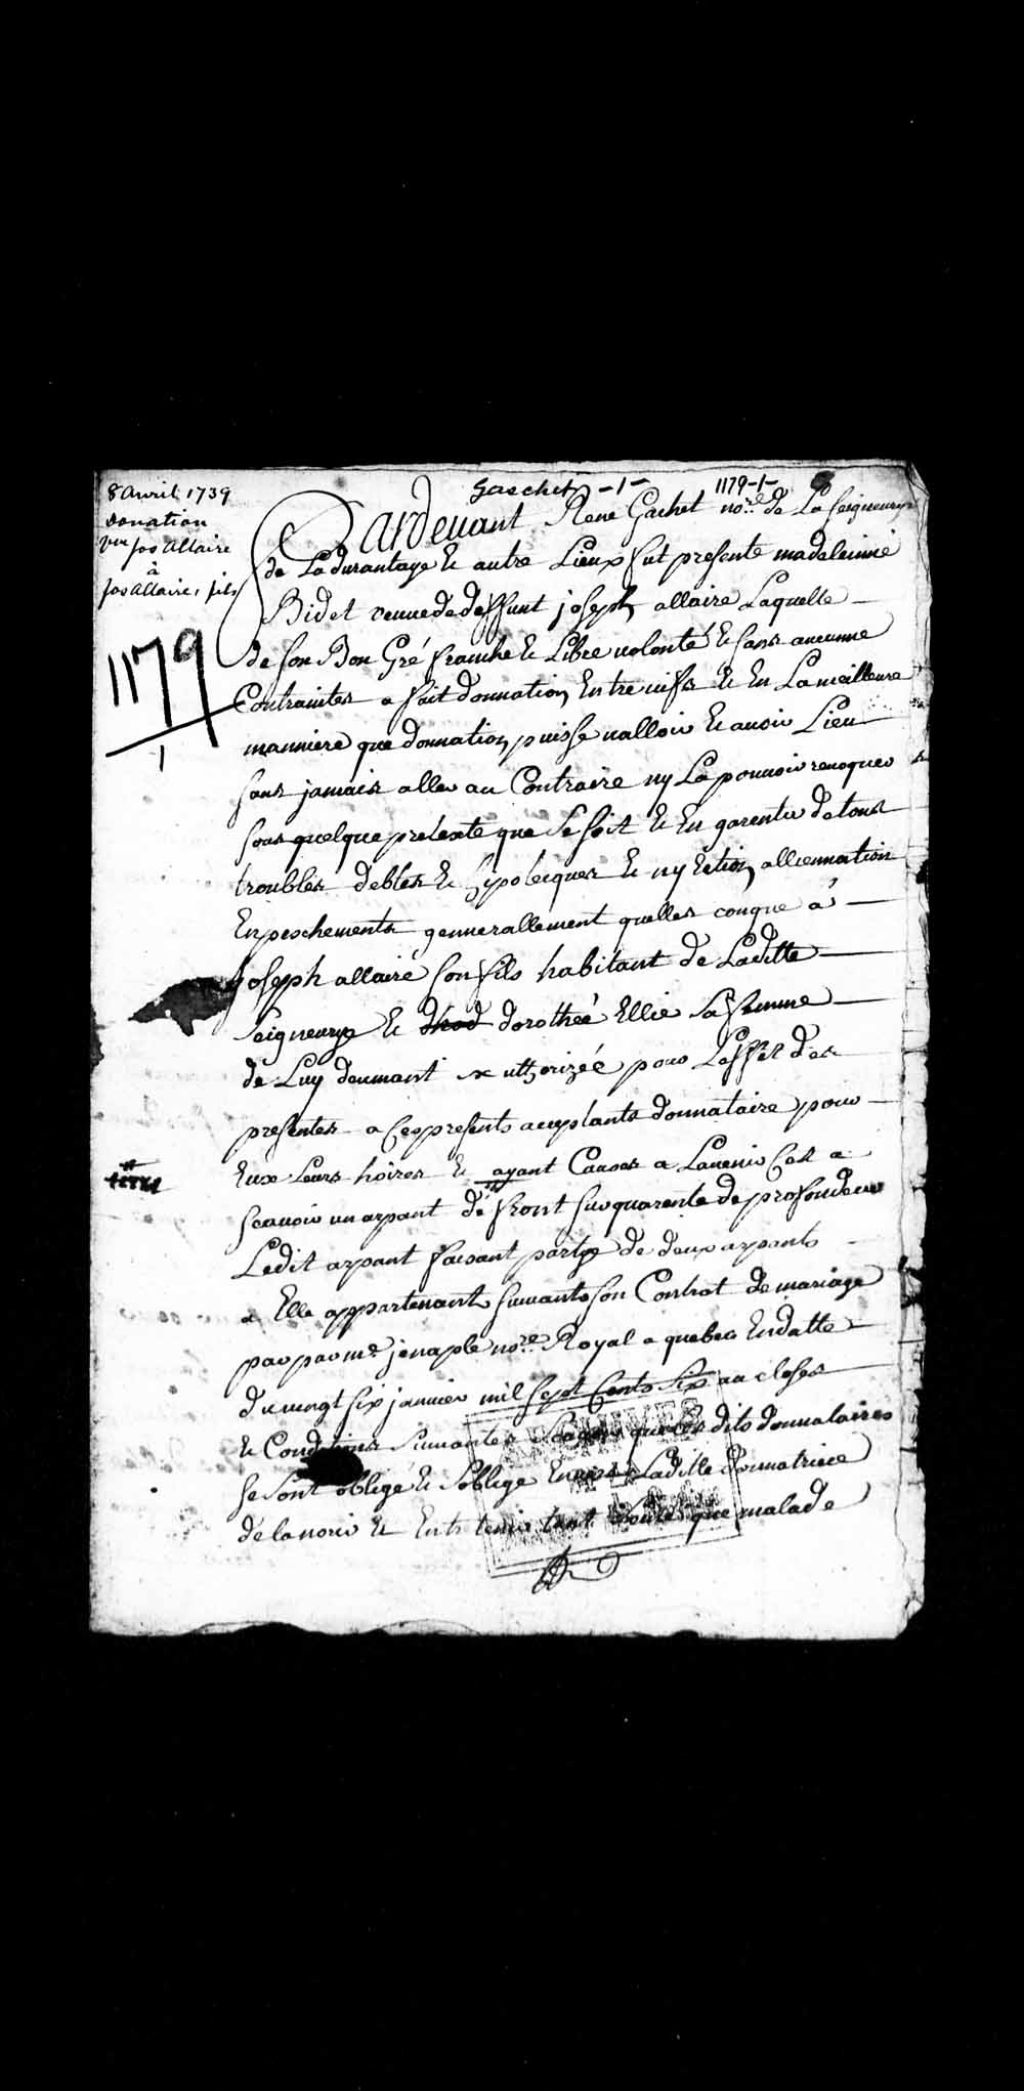 8 avril 1739
Donation
Vve Jos Allaire
à
Jos Allaire, fils
1179
1
Gaschet -1-
1179-1-
Pardevant René Gachet nore de La Seigneurye
de Ladurantaye & autre Lieux fut presente madeleinne
Bidet veuve de deffunt joseph allaire Laquelle
de son Bon Gré franche & Libre volonté & sans aucunne
Contraintes a fait donnation Entre vifs & En La meilleure
manniere que donnation puisse valloir & avoir Lieu
sans jamais aller au Contraire ny La pouvoir revoquer
sous quelque pretexte que se soit & En garentie de tous
troubles debtes & hypoteques & alliennation
Enpeschements gennerallement quelles conque a
Joseph allaire son fils habitant de Laditte
Seigneurye & dorothée Ellie Sa femme
de Luy deumant authorizée pour Leffet des
presentes a Ces presents acceptants donnataire pour
Eux Leurs hoires & ayant Causes a Lavenir Cest a
scavoir un arpant de front sur quarente de profondeur
Ledit arpant faisant partye de deux arpants
a Elle appartenants suivants son Contrat de mariage
par par me jenaple nore Royal a quebec En datte
du vingt six janvier mil sept Cents Six au closes
& Conditions Suivantes que Les dits donnataires
se sont obligé & soblige Laditte donnatrice
de la norir & Entretenir tant que malade